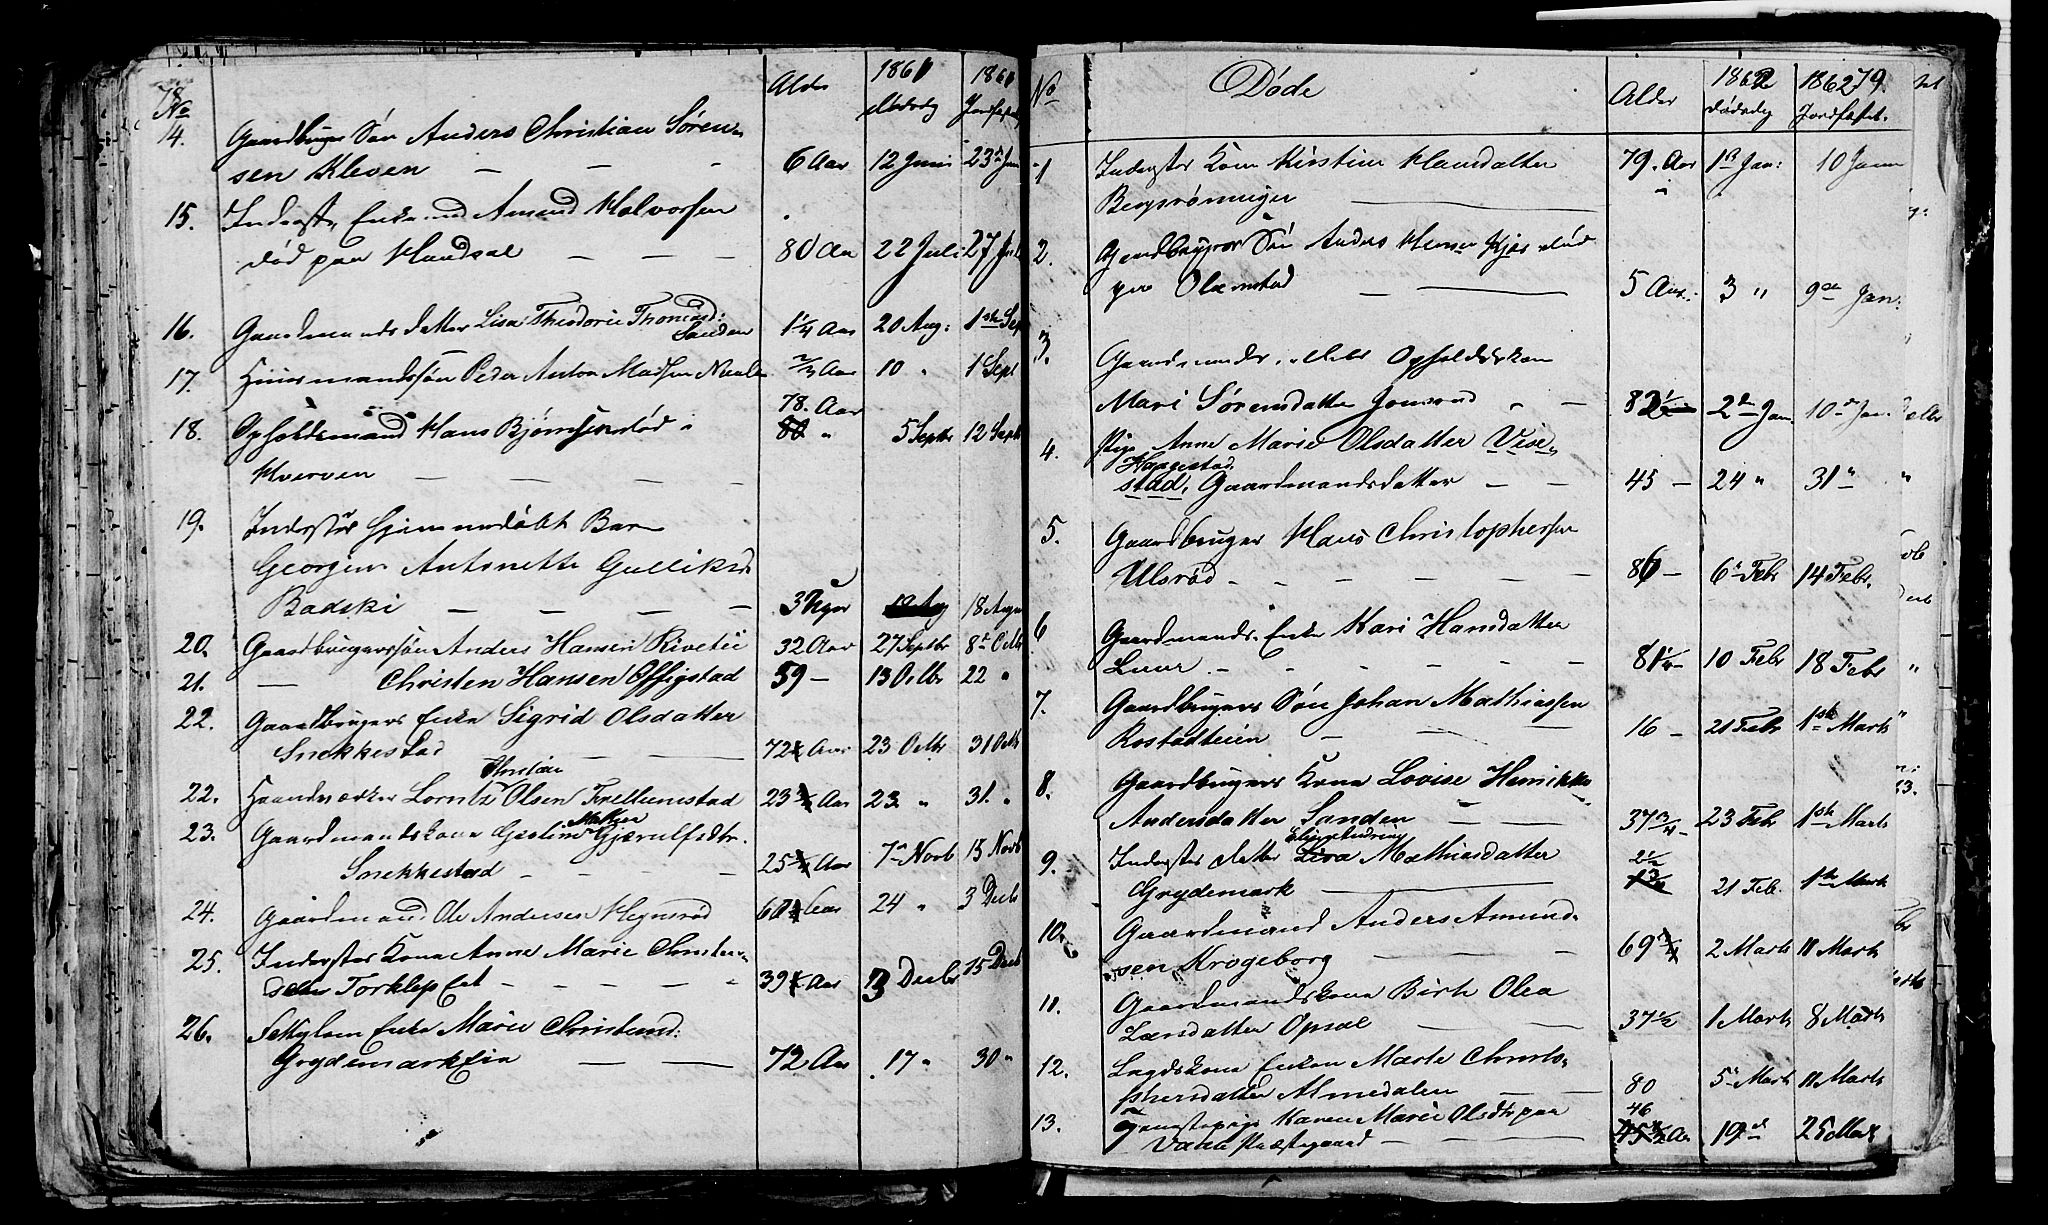 78
No Alder 1861 Dødsdag 1861 Jordfæstet
14. Gaardbruger Søn Anders Christian Søren-
sen Kleven — — - 6 Aar 12 Juni 23de Juni
15. Inderst, Enkemand Amund Halvorsen
død paa Haudsal — — — 80 Aar 22 Juli 27 Juli
16. Gaardmands datter Lisa Theodorie Thomasd:
Sanden 1 1/4 Aar 20 Aug: 1ste Sept
17. Huusmandssøn Peder Anton Madsen 2/3 Aar 10 " 1 Sept
78. Aar
18. Opholdsmand Hans Bjørnsen død i 80 " 5 Septbr 12 Septbr
Kverven — — — —
19. Inderster hjemmedøbt Barn
Georgine Antonette Gulliksd.
Badski — — — — 3 Uger 12 Aug 18 August
20. Gaardbrugerssøn Anders Hansen Rivetii 32 Aar 27 Septbr 8de Octbr
21. — Christen Hansen Offigstad 59 — 13 Octbr 22 "
22. Gaardbrugers Enke Sigrid Olsdatter
Snekkestad — — — 72 Aar 23 Octbr 31 Octbr
Christian
22. Haandverker Lorntz Olsen Trellumstad 23 3/4 Aar 23 " 31. "
23. Gaardmandskone Gjerulfsdtr.
Snekkestad - - - - 25 Aar 7de Novb 13 Novb
24. Gaardmand Ole Andersen Hynsrød 60 Aar 24 " 3 Decbr
25. Inderster Kone Anne Marie Christen-
sdatter Torklep Eiet - - - - 39 Aar 3 Decbr 15 Decb
26. Enke Marie Christensd:
Grydemarkeie — — 72 Aar 17 " 30 "
No Døde Alder 1862 Dødsdag 1862 79. Jordfæstet.
1 Inderster Kone Kirstine Hansdatter 79. Aar 1ste Jan: 10 Janu
Bergsrønningen
2. Gaardbruger Søn Anders Hansen død
paa Olumstad — — 5 Aar: 3 " 9de Jan:
3. Gaardmands Opholdskone
Mari Sørensdatter Jonsrud " " 82 1/2 2de Jan. 10de Jan.
4. Pige Anne Marie Olsdatter Vive-
Haugestad
stad, Gaardmandsdatter — — 45 — 24 " 31 "
5. Gaardbruger Hans Christophersen
Ulsrød - — — — — 86 — 6te Febr 14 Febr.
6 Gaardmands Enke Kari Hansdatter
Luur - - - - - 81 1/4 — 10 Febr 18 Febr
7. Gaardbrugers Søn Johan Mathiassen
Rostadteien — — — — 16 — 21 Febr 1ste Marts
8. Gaardbrugers Kone Lovise Henrikke
Andersdatter Sanden — — 37 3/4 — 23 Febr 1ste Marts
9. Inderster datter Lisa Mathiasdatter 2 1/2
Grydemark — 1 3/4 21 Feb. 1ste Marts
10. Gaardmand Anders Amund-
6 sen Krogeborg — — — 69 3/4 2 Marts 11 Marts
11. Gaardmandskone Birth Olea
Larsdatter Opsal — — 37 1/2 1 Marts 8 Marts
12. Lægdskone Enken Marte Christo-
phersdatter Almedalen — — 80 5te Marts 11 Marts
46
13. Tjenestepige Karen Marie Olsdtr paa
Vaale Præstegaard — — — 45 3/4 Aar 19de 25 Mar